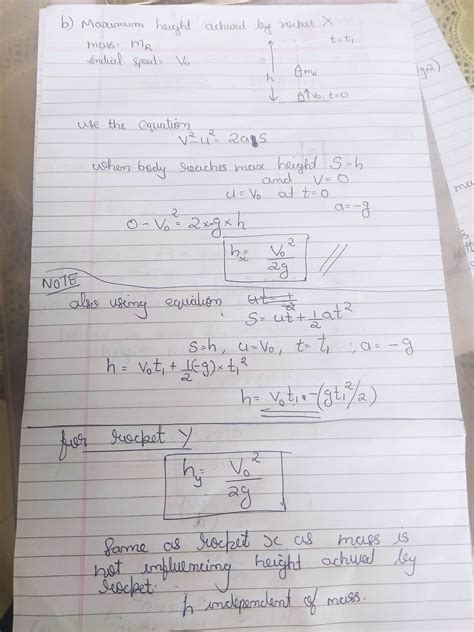 b) Maximum height achived by rocket X
mass = mR
initial speed = V₀
t = t₁
h
mR
V₀, t=0
use the equation
V²-u² = 2as
when body reaches max height S=h
and V=0
u=V₀ at t=0
a=-g
0 - V₀² = 2×-g×h
hx = V₀²/2g
NOTE
also using equation
S = ut + 1/2 at²
S=h, u=V₀, t=t₁, a=-g
h = V₀t₁ + 1/2(-g)×t₁²
h = V₀t₁ - (gt₁²/2)
for rocket Y
hy = V₀²/2g
Same as rocket x as mass is
not influencing height achived by
rocket.
h independent of mass.